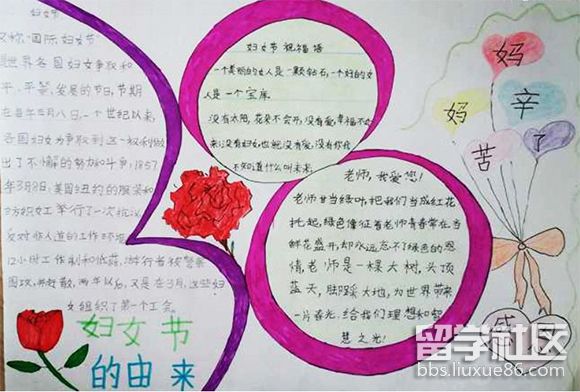 妇女节
又称"国际妇女节"
是世界各国妇女争取和
平、平等、发展的节日,节期
在每年三月八日。一个世纪以来,
各国妇女为争取到这一权利做
出了不懈的努力和斗争,1857
年3月8日,美国纽约的服装和
纺织女工举行了一次抗议
反对非人道的工作环境,
12小时工作制和低薪。游行者被警察
围攻,并赶散,两年以后,又是在3月,这些妇
女组织了第一个工会。
妇女节
的由来
妇女节祝福语
一个美丽的女人是一颗钻石,一个好的女
人是一个宝库。
没有太阳,花朵不会开,没有爱,幸福不会
来,没有妇女,也就没有爱,没有你我
不知道什么叫未来。
老师,我爱您!
老师甘当绿叶,把我们当成红花
托起,绿色像征着老师青春常在,当
鲜花盛开,却永远忘不了绿色的恩
情,老师是一棵大树,头顶
蓝天,脚踩大地,为世界带来
一片春光,给我们理想和智
慧之光!
妈
妈
辛
苦
了
感
留学社区
bbs.liuxue86.com